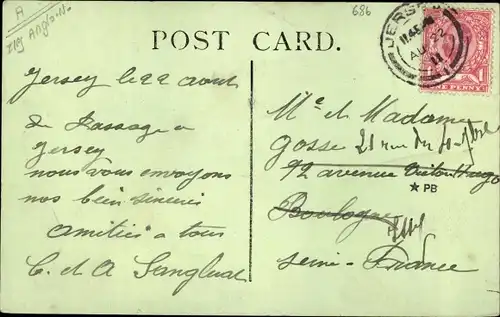 A
Ily Anglo-N.
686
POST CARD.
JERSEY
11.45 AM
AU 22
11
ONE PENNY
Jersey le 22 août
de Passage a
Jersey
nous vous envoyons
nos bien sincères
amitiés a tous
C. et A
Mr et Madame
Gosse 21 rue du
92 avenue Victor Hugo
★ PB
Boulogne
Seine - France